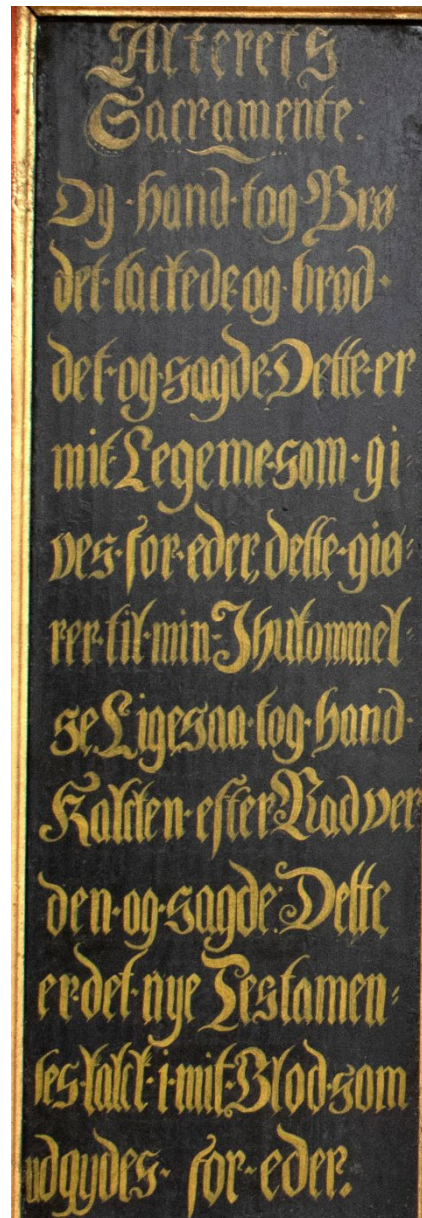 Alterets
Sacramente:
Og hand tog Brø
det tackede og brød
det og sagde Dette er
mit Legeme som gi
ves for eder, dette giø
rer til min Ihukommel
se, Ligesaa tog hand
Kalcken efter Nadver
den og sagde: Dette
er det nye Testamen
tes kalck i mit Blod som
udgydes for eder.